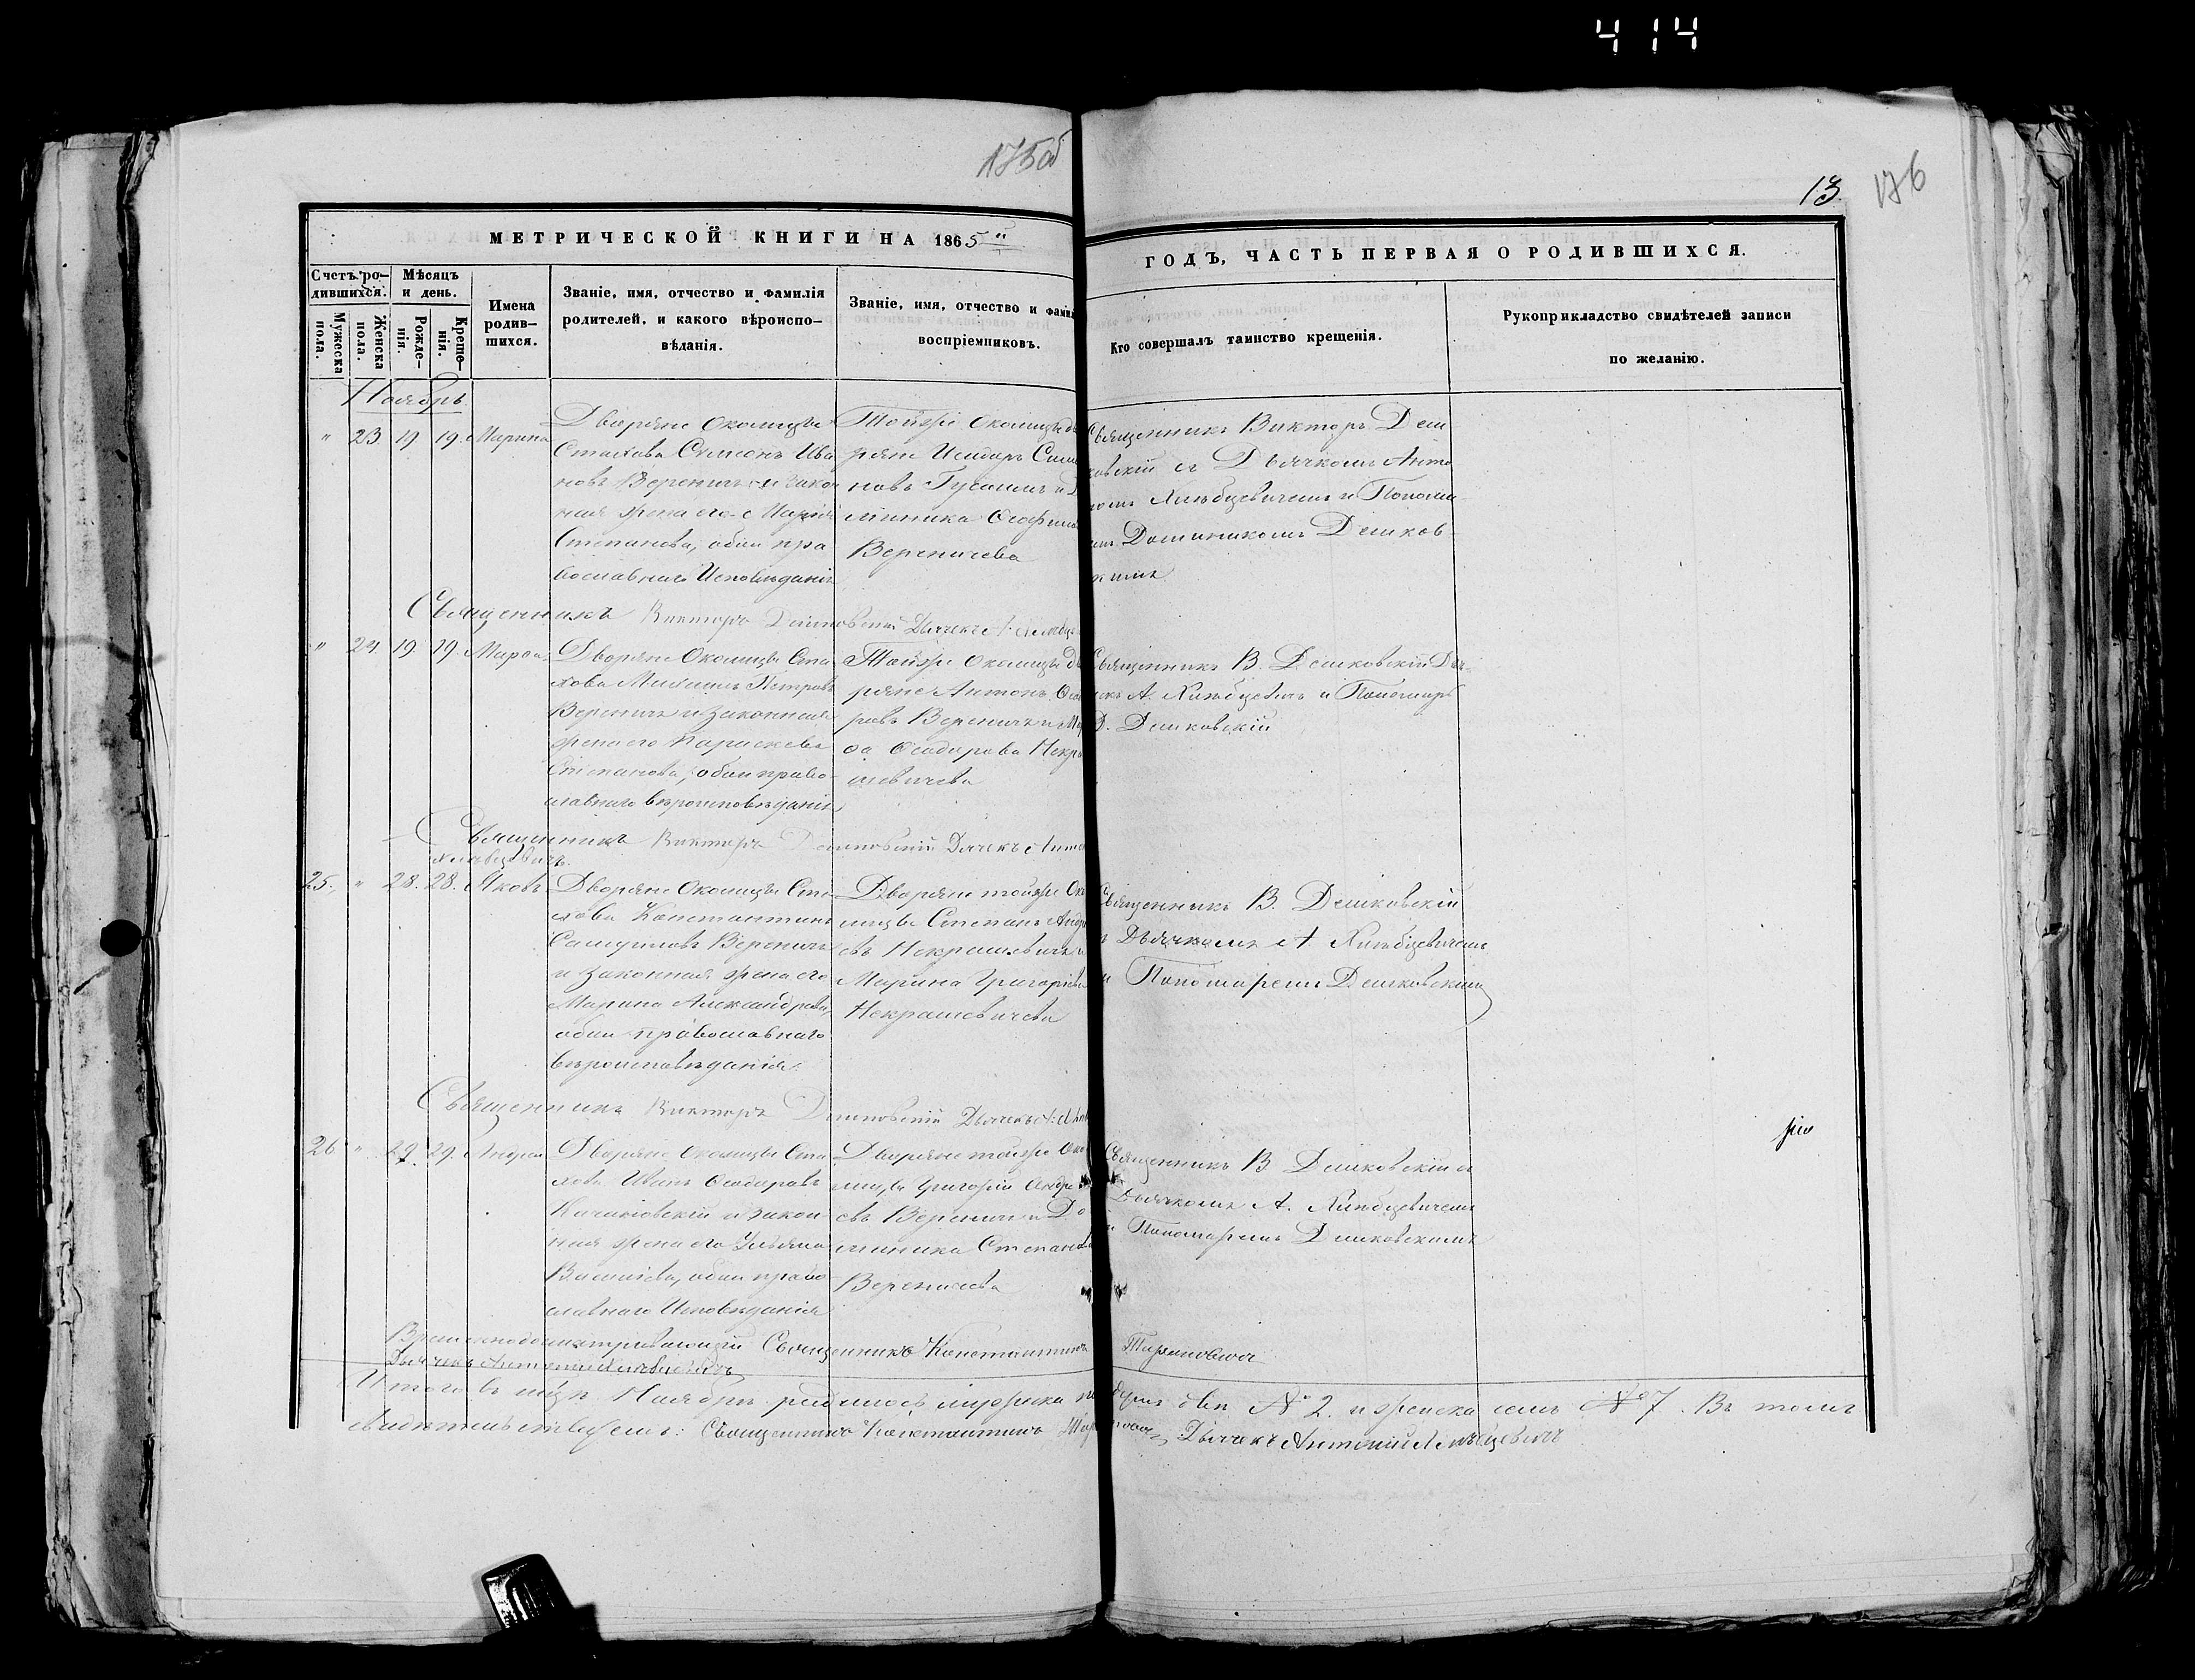 414
175 об
13.
176
МЕТРИЧЕСКОЙ КНИГИ НА 1865
ГОДЪ, ЧАСТЬ ПЕРВАЯ О РОДИВШИХСЯ.
Счетъ ро-
дившихся.
Мужеска
пола.
Женска
пола.
Мѣсяцъ
и день.
Рожде-
нія.
Креще-
нія.
Имена
родив-
шихся.
Званіе, имя, отчество и фамилія
родителей, и какого вѣроиспо-
вѣданія.
Званіе, имя, отчество и фамил
воспріемниковъ.
Кто совершалъ таинство крещенія.
Рукоприкладство свидѣтелей записи
по желанію.
Ноябрь
" 23 19 19. Марина
Дворяне Околицы
Стахова Симеонъ Ива
новъ Вереничъ и зако
ная жена его Марія
Степанова, обои пра
вославнаго Исповѣданія
Тойже Околицы дв
ряне Исидоръ Сим
новъ
Вереничева
Священникъ Викторъ Деш
ковскій съ Дьячкомъ Анто
номъ Хлѣбцевичемъ и Понома
Доминикомъ Дешков
Священникъ Викторъ Дешковскій Дьячекъ А. Хлѣбце
" 24. 19. 19. Марѳа
Дворяне Околицы Ста
хова Михаилъ Петровъ
Вереничъ и законная
жена его Параскева
Степанова, обои право
славнаго вѣроисповѣданія
Тойже Околицы дв
ряне Антонъ Ѳео
ровъ Вереничъ и Мар
ѳа Ѳеодорова Некра
шевичева
Священникъ В. Дешковскій Дья
чекъ А. Хлѣбцевичъ и Пономарь
Д. Дешковскій
Священникъ Викторъ Дешковскій Дьячекъ Анто
Хлѣбцевичъ.
25. " 28. 28. Яковъ
Дворяне Околицы Ста
хова Константинъ
Самуиловъ Вереничъ
и законная жена его
Марина Александрова,
обои православнаго
вѣроисповѣданія.
Дворяне тойже Око
лицы Степанъ Андре
евъ Некрашевичъ и
Марина Григорьева
Некрашевичева
Священникъ В. Дешковскій
съ Дьячкомъ А. Хлѣбцевичемъ
и Пономаремъ Дешковскимъ
Священникъ Викторъ Дешковскій Дьячекъ А. Хлѣб
26 " 29. 29. Андрей
Дворяне Околицы Ста
хова Иванъ Ѳеодоровъ
Качановскій и закон
ная жена его Ульяна
Васильева, обои право
славнаго Исповѣданія
Дворяне тойже Око
лицы Григорій Андре
евъ Вереничъ и До
миника Степанова
Вереничева
Священникъ В. Дешковскій съ
Дьячкомъ А. Хлѣбцевичемъ
и Пономаремъ Дешковскимъ
Священникъ Константинъ
Дьячекъ Антоній Хлѣбцевичъ
Итого въ мѣсяцѣ Ноябрѣ родилось мужеска два №2. и женска семь №7. Въ томъ
свидѣтельствуемъ: Священникъ Константинъ Дьячекъ Антоній Хлѣбцевичъ